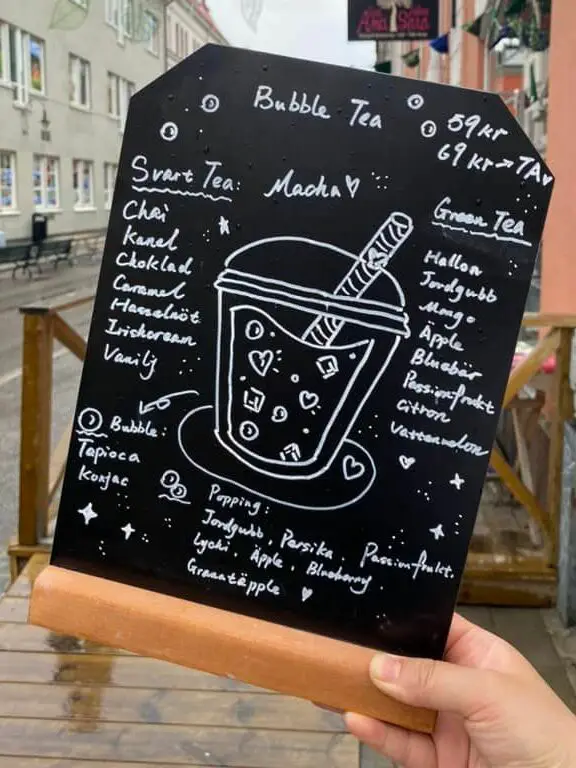 Bubble Tea
59 kr
69 kr → TA
Svart Tea:
Macha
Chai
Kanel
Choklad
Caramel
Hasselnöt
Iriskorean
Vanilj
Green Tea
Hallon
Jordgubb
Mango
Äpple
Bluebär
Passionfrukt
Citron
Vattenmelon
Bubble:
Tapioca
Konjac
Popping:
Jordgubb, Persika, Passionfrukt.
Lychi, Äpple, Blueberry
Granatäpple